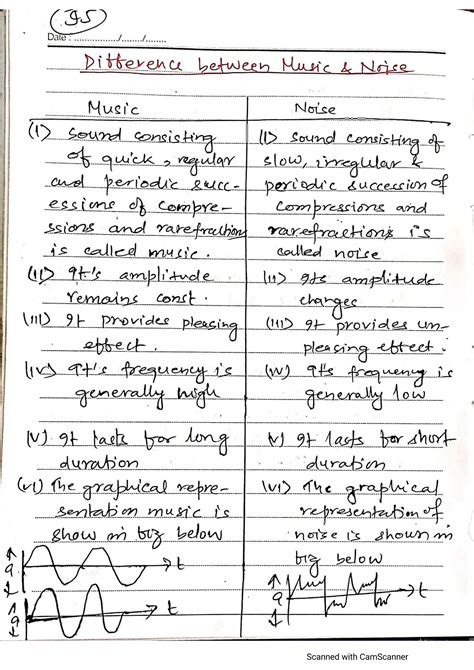 35
Date : ............../......./.......
Difference between Music & Noise
Music
(I) Sound consisting
of quick, regular
and periodic succ-
essions of compre-
ssions and rarefractions
is called music.
(II) It's amplitude
remains const.
(III) It provides pleasing
effect.
(IV) It's frequency is
generally high
(V) It lasts for long
duration
(VI) The graphical repre-
sentation music is
show in fig below
a
t
a
t
Noise
(I) Sound consisting of
slow, irregular &
periodic succession of
compressions and
rarefractions is
called noise
(II) Its amplitude
changes
(III) It provides un-
pleasing effect.
(IV) It's frequency is
generally low
(V) It lasts for short
duration
(VI) The graphical
representation of
noise is shown in
fig below
a
t
Scanned with CamScanner